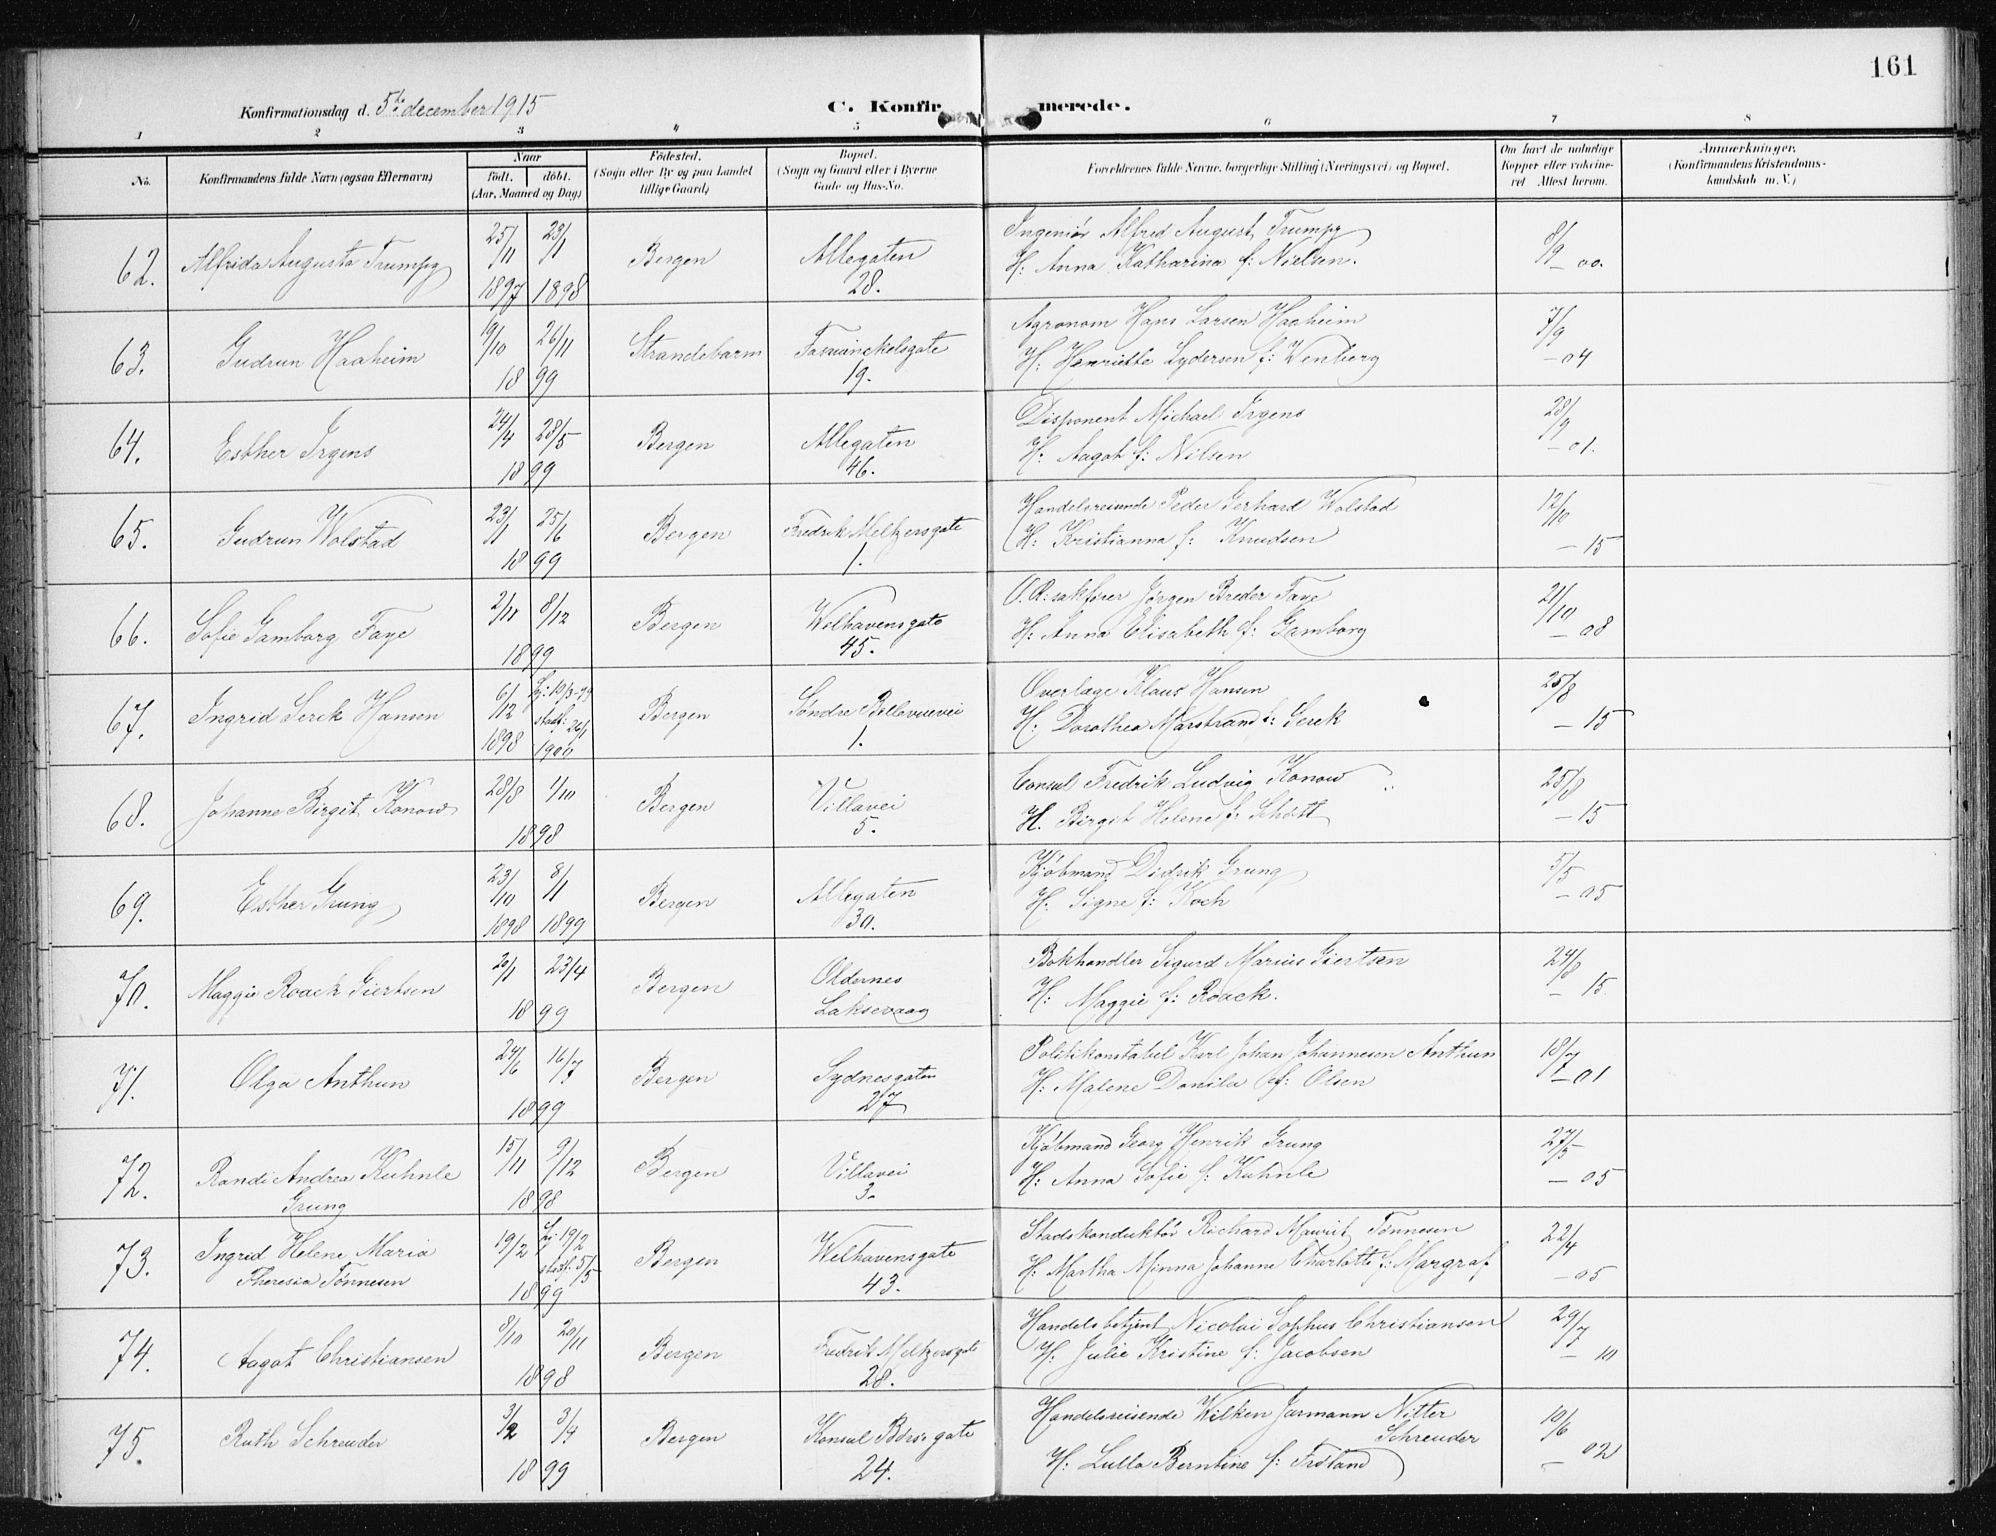 161
Konfirmationsdag d. 5te december 1915
C. Konfir merede.
1 2 3 4 5 6 7 8
No. Konfirmandens fulde Navn (ogsaa Efternavn) Naar født. døbt. (Aar, Maaned og Dag) Fødested. (Sogn eller By og paa Landet tillige Gaard) Bopæl. (Sogn og Gaard eller i Byerne Gade og Hus-No. Forældrenes fulde Navne, borgerlige Stilling (Næringsvei) og Bopæl. Om havt de naturlige Kopper eller vakcineret Attest herom. Anmærkninger. (Konfirmandens Kristendomskundskab m. V.)
62. Alfrida Augusta Trumpy 25/11 1897 23/1 1898 Bergen Allegaten 28. Ingeniør Alfred August Trumpy H: Anna Katharina f: Nielsen. 8/9 – 00.
63. Gudrun Haaheim 19/10 26/11 1899 Strandebarm gate 19. Agronom Hans Larsen Haaheim H: Henriette Lydersen f: Wenberg 7/9 – 04
64. Esther Irgens 24/4 28/5 1899 Bergen Allegaten 46. Disponent Michael Irgens H: Aagot f: Nilsen 28/9 – 01.
65. Gudrun Wolstad 23/1 25/6 1899 Bergen Fredrik Meltzersgate 1. Handelsreisende Peder Gerhard Wolstad H: Kristianna f: Knudsen 12/10 – 15
66. Sofie Gamborg Faye 2/11 8/12 1899 Bergen Welhavensgate 45. O.R:sakfører Jørgen Breder Faye H: Anna Elisabeth f: Gamborg 21/10 – 08
67. Ingrid Gerck Hansen 6/12 1898 stadf: 26/1 Bergen Søndre Bellevuevei 1. Overlæge Klaus Hansen H: Dorothea Marstrand f: Gerck 25/8 – 15
68. Johanne Birgit Konow 28/8 1/10 1898 Bergen Villavei 5. Consul Fredrik Ludvig Konow H. Birgit Helene f: Schøtt 25/8 – 15
69. Esther Grung 23/10 1898 8/1 1899 Bergen Allegaten 30. Kjøbmand Didrik Grung H: Signe f: Koch 5/5 – 05
70. Maggie Roack Giertsen 20/1 23/4 1899 Bergen Oldernes Laksevaag Bokhandler Sigurd Marius Giertsen H: Maggie f: Roack. 24/8 – 15.
71. Olga Anthun 24/6 16/7 1899 Bergen Sydnesgaten 27 Politikonstabel Karl Johan Johannesen Anthun H: Malene Danila f: Olsen 18/7 – 01
72. Randi Andrea Kuhnle Grung 15/11 9/12 1898 Bergen Villavei 3. Kjøbmand Georg Henrik Grung H: Anna Sofie f: Kuhnle 27/5 – 05
73. Ingrid Helene Maria Theresia Tønnesen 19/2 19/2 stadf: 5/5 1899 Bergen Welhavensgate 43. Stadskonduktør Richard Tønnesen H: Martha Minna Johanne Charlotte f: Margraf 22/4 – 05
74. Aagot Christiansen 8/10 20/11 1898 Bergen Fredrik Meltzersgate 28. Handelsbetjent Nicolai Sophus Christiansen H: Julie Kristine f: Jacobsen 29/7 – 10
75. Ruth Schreuder 3/2 3/4 1899 Bergen Konsul Børs gate 24. Handelsreisende Wilken Jarmann Nitter Schreuder H: Lulla Berntine f: Frøland 10/6 – 02